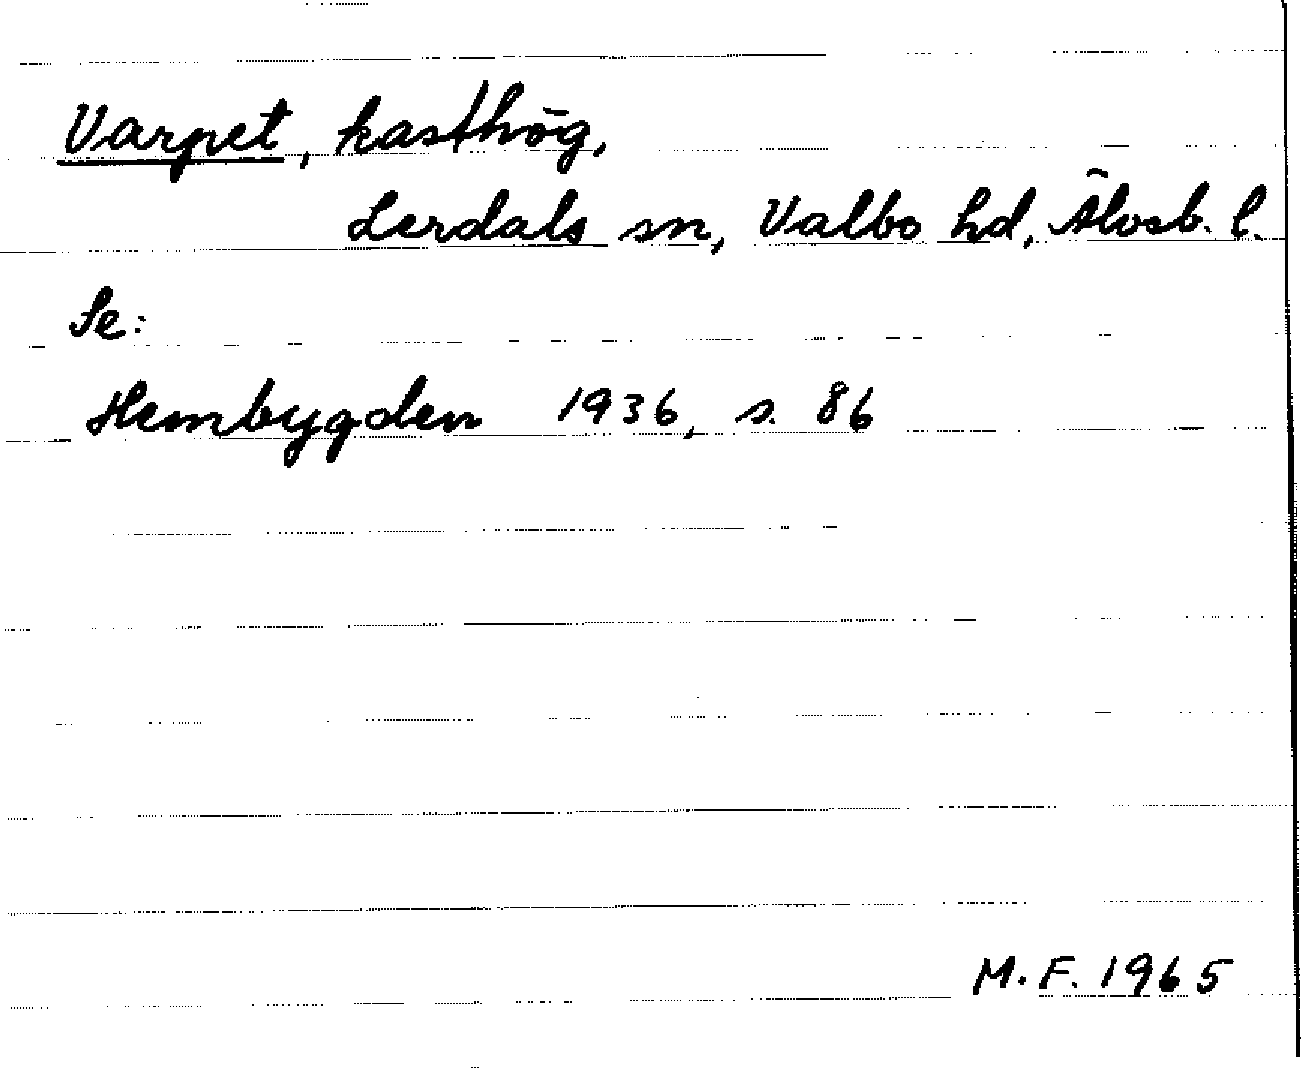 Varpet, kasthög,
Lerdals sn, Valbo hd, Älvsb. l.
Se:
Hembygden 1936, s. 86
M.F. 1965